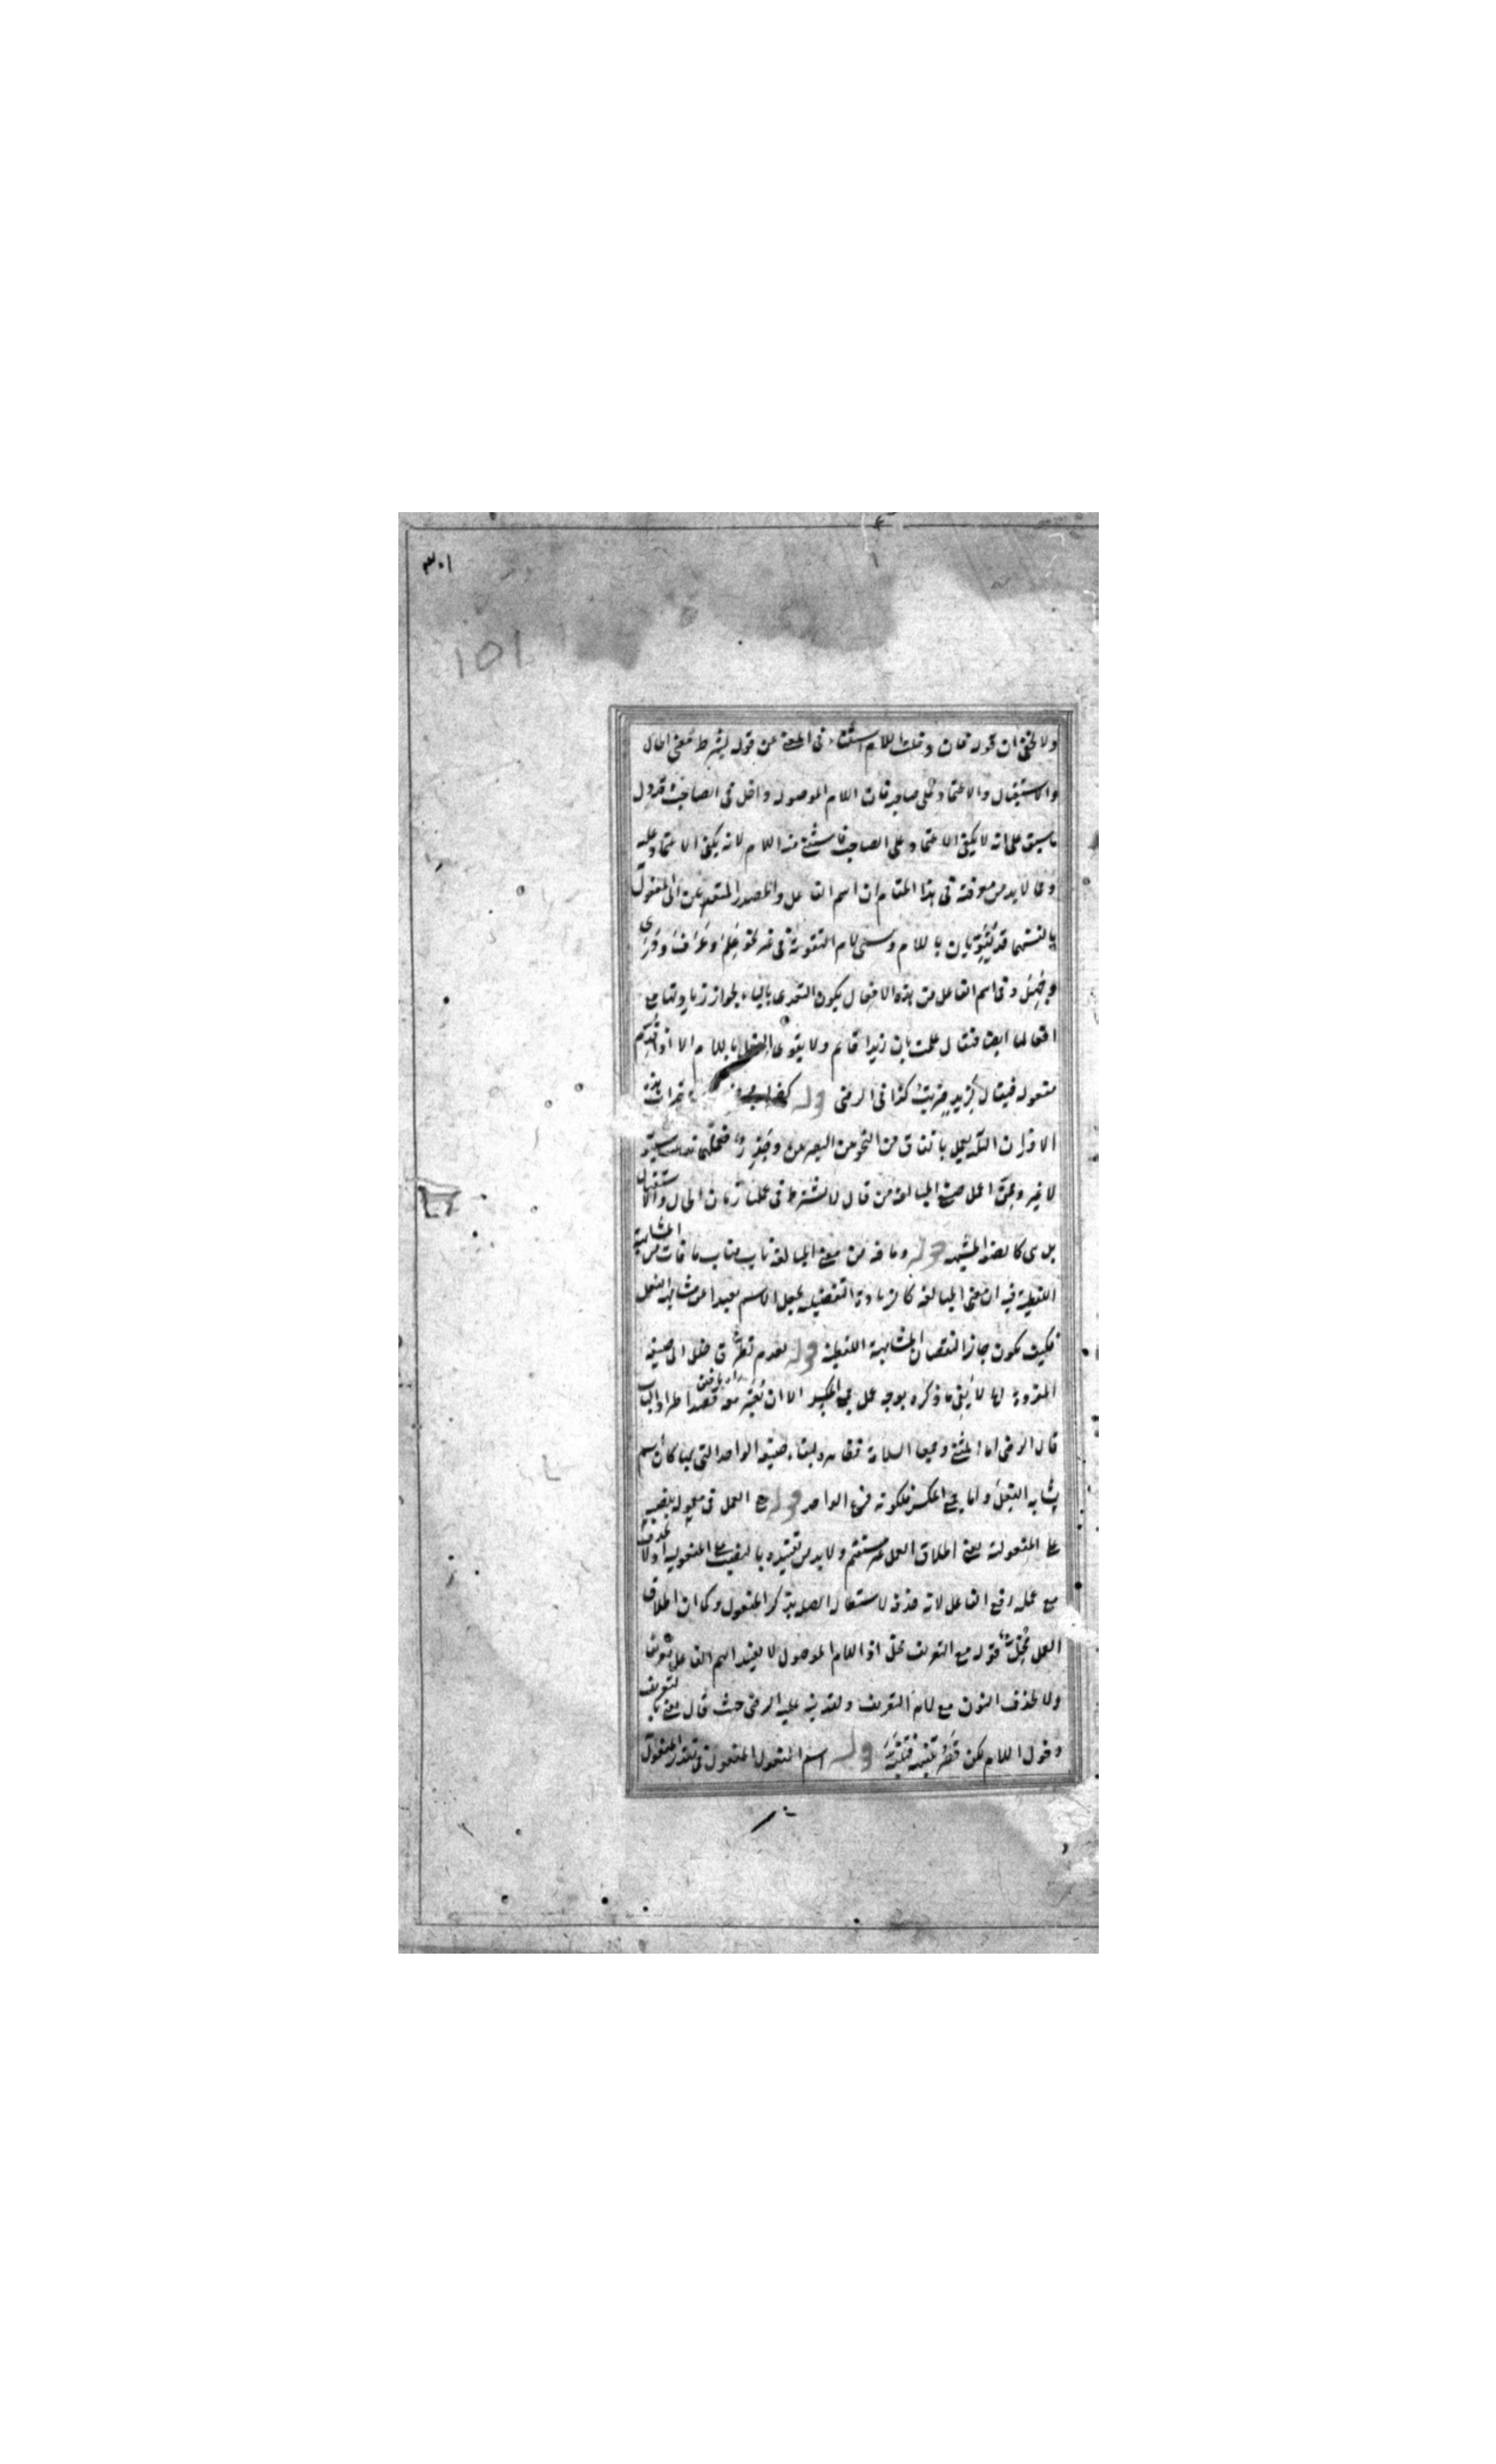 ٣٠١
101
ولا يخفى ان قوله فان دخلت اللام استثناء في المعنى عن قوله يشترط معنى الحال
والاستقبال والاعتماد على صاحبه فان اللام الموصول داخل في الصاحب قدول
ما سبق على انه لا يكفي الاعتماد على الصاحب فاستثنى منه اللام لانه يكفي الاعتماد عليه
ومما لا بد من معرفته في هذا المقام ان اسم الفاعل والمصدر المتعديين الى المفعول
بانفسهما قد يقويان باللام ويسمى لام التقوية في غير نحو علم وعرف ودرى
وجهل وفي اسم الفاعل من هذه الافعال يكون التعدي بالباء لجواز زيادتها مع
افعالها ايضا فيقال علمت بان زيدا قائم ولا يقوى الفعل باللام الا اذا قدم
مفعوله فيقال لزيد ضربت كذا في الرضي قوله كضراب هذه
الاوزان الثلثة يعمل باتفاق من النحويين البصريين
لا غير عمل صيغ المبالغة من قال لا يشترط في عملها زمان الحال والاستقبال
بل هي كالصفة المشبهة قوله وما فيه من معنى المبالغة ناب مناب ما فات من المشابهة
اللفظية فيه ان معنى المبالغة كالزيادة التفضيلية يجعل الاسم بعيدا عن مشابهة الفعل
فكيف يكون جابرا لنقصان المشابهة اللفظية قوله لعدم تطرق خلل الى صيغة
المفرد لا يفي ما ذكره بوجه عمل جمع المكسر الا ان يعتبر معه قصد اطراد الباب
قال الرضي اما المثنى وجمعا السلامة فظاهر لبقاء صيغة الواحد التي بها كان اسم
يشابه الفعل واما جمع المكسر فلكونه فرع الواحد قوله مع العمل في معموله بنصبه
على المفعولية يعني اطلاق العمل غير مستقيم ولا بد من تقييده بالنصب على المفعولية اذ لا يحذف
مع عمله رفع الفاعل لانه حذف لاستطالة الصلة بذكر المفعول وكما ان اطلاق
العمل مختل قوله مع التعريف مختل اذ اللام الموصول لا يفيد اسم الفاعل تعريفا
ولا يحذف النون مع لام التعريف ولقد نبه عليه الرضي حيث قال يعني بالتعريف
دخول اللام لكن قصر قوله اسم المفعول المفعول في تقدير المفعول